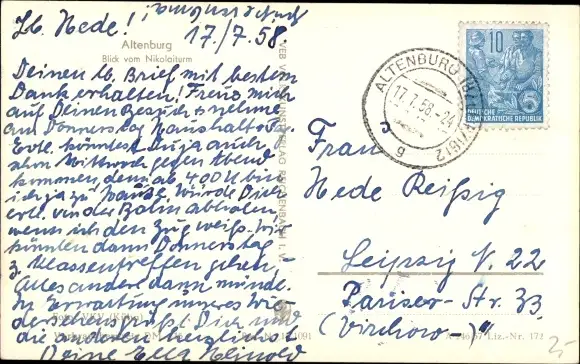 Lb. Hede!
17./7.58.
Altenburg
Blick vom Nikolaiturm
Deinen lb. Brief mit bestem
Dank erhalten! Freue mich
auf Deinen Besuch u. nehme
am Donnerstag Haushaltstag.
Evtl. könntest Du ja auch
schon Mittwoch gegen Abend
kommen, denn ab 4.00 U. bin
ich ja zu Hause. Würde Dich
evtl. von der Bahn abholen,
wenn ich den Zug weiß. Wir
könnten dann Donnerstag
z. Klassentreffen gehen,
Alles andere dann münd.
In Erwartung unseres Wie-
dersehens grüßt Dich und
die anderen herzlichst
Deine Ella Heinold
ALTENBURG
17.7.58.-24
g
10
DEUTSCHE
DEMOKRATISCHE REPUBLIK
5
Frau
Hede Reißig
Leipzig N. 22
Pariser-Str. 33
(Virchow-)"
Liz.-Nr. 172
25-